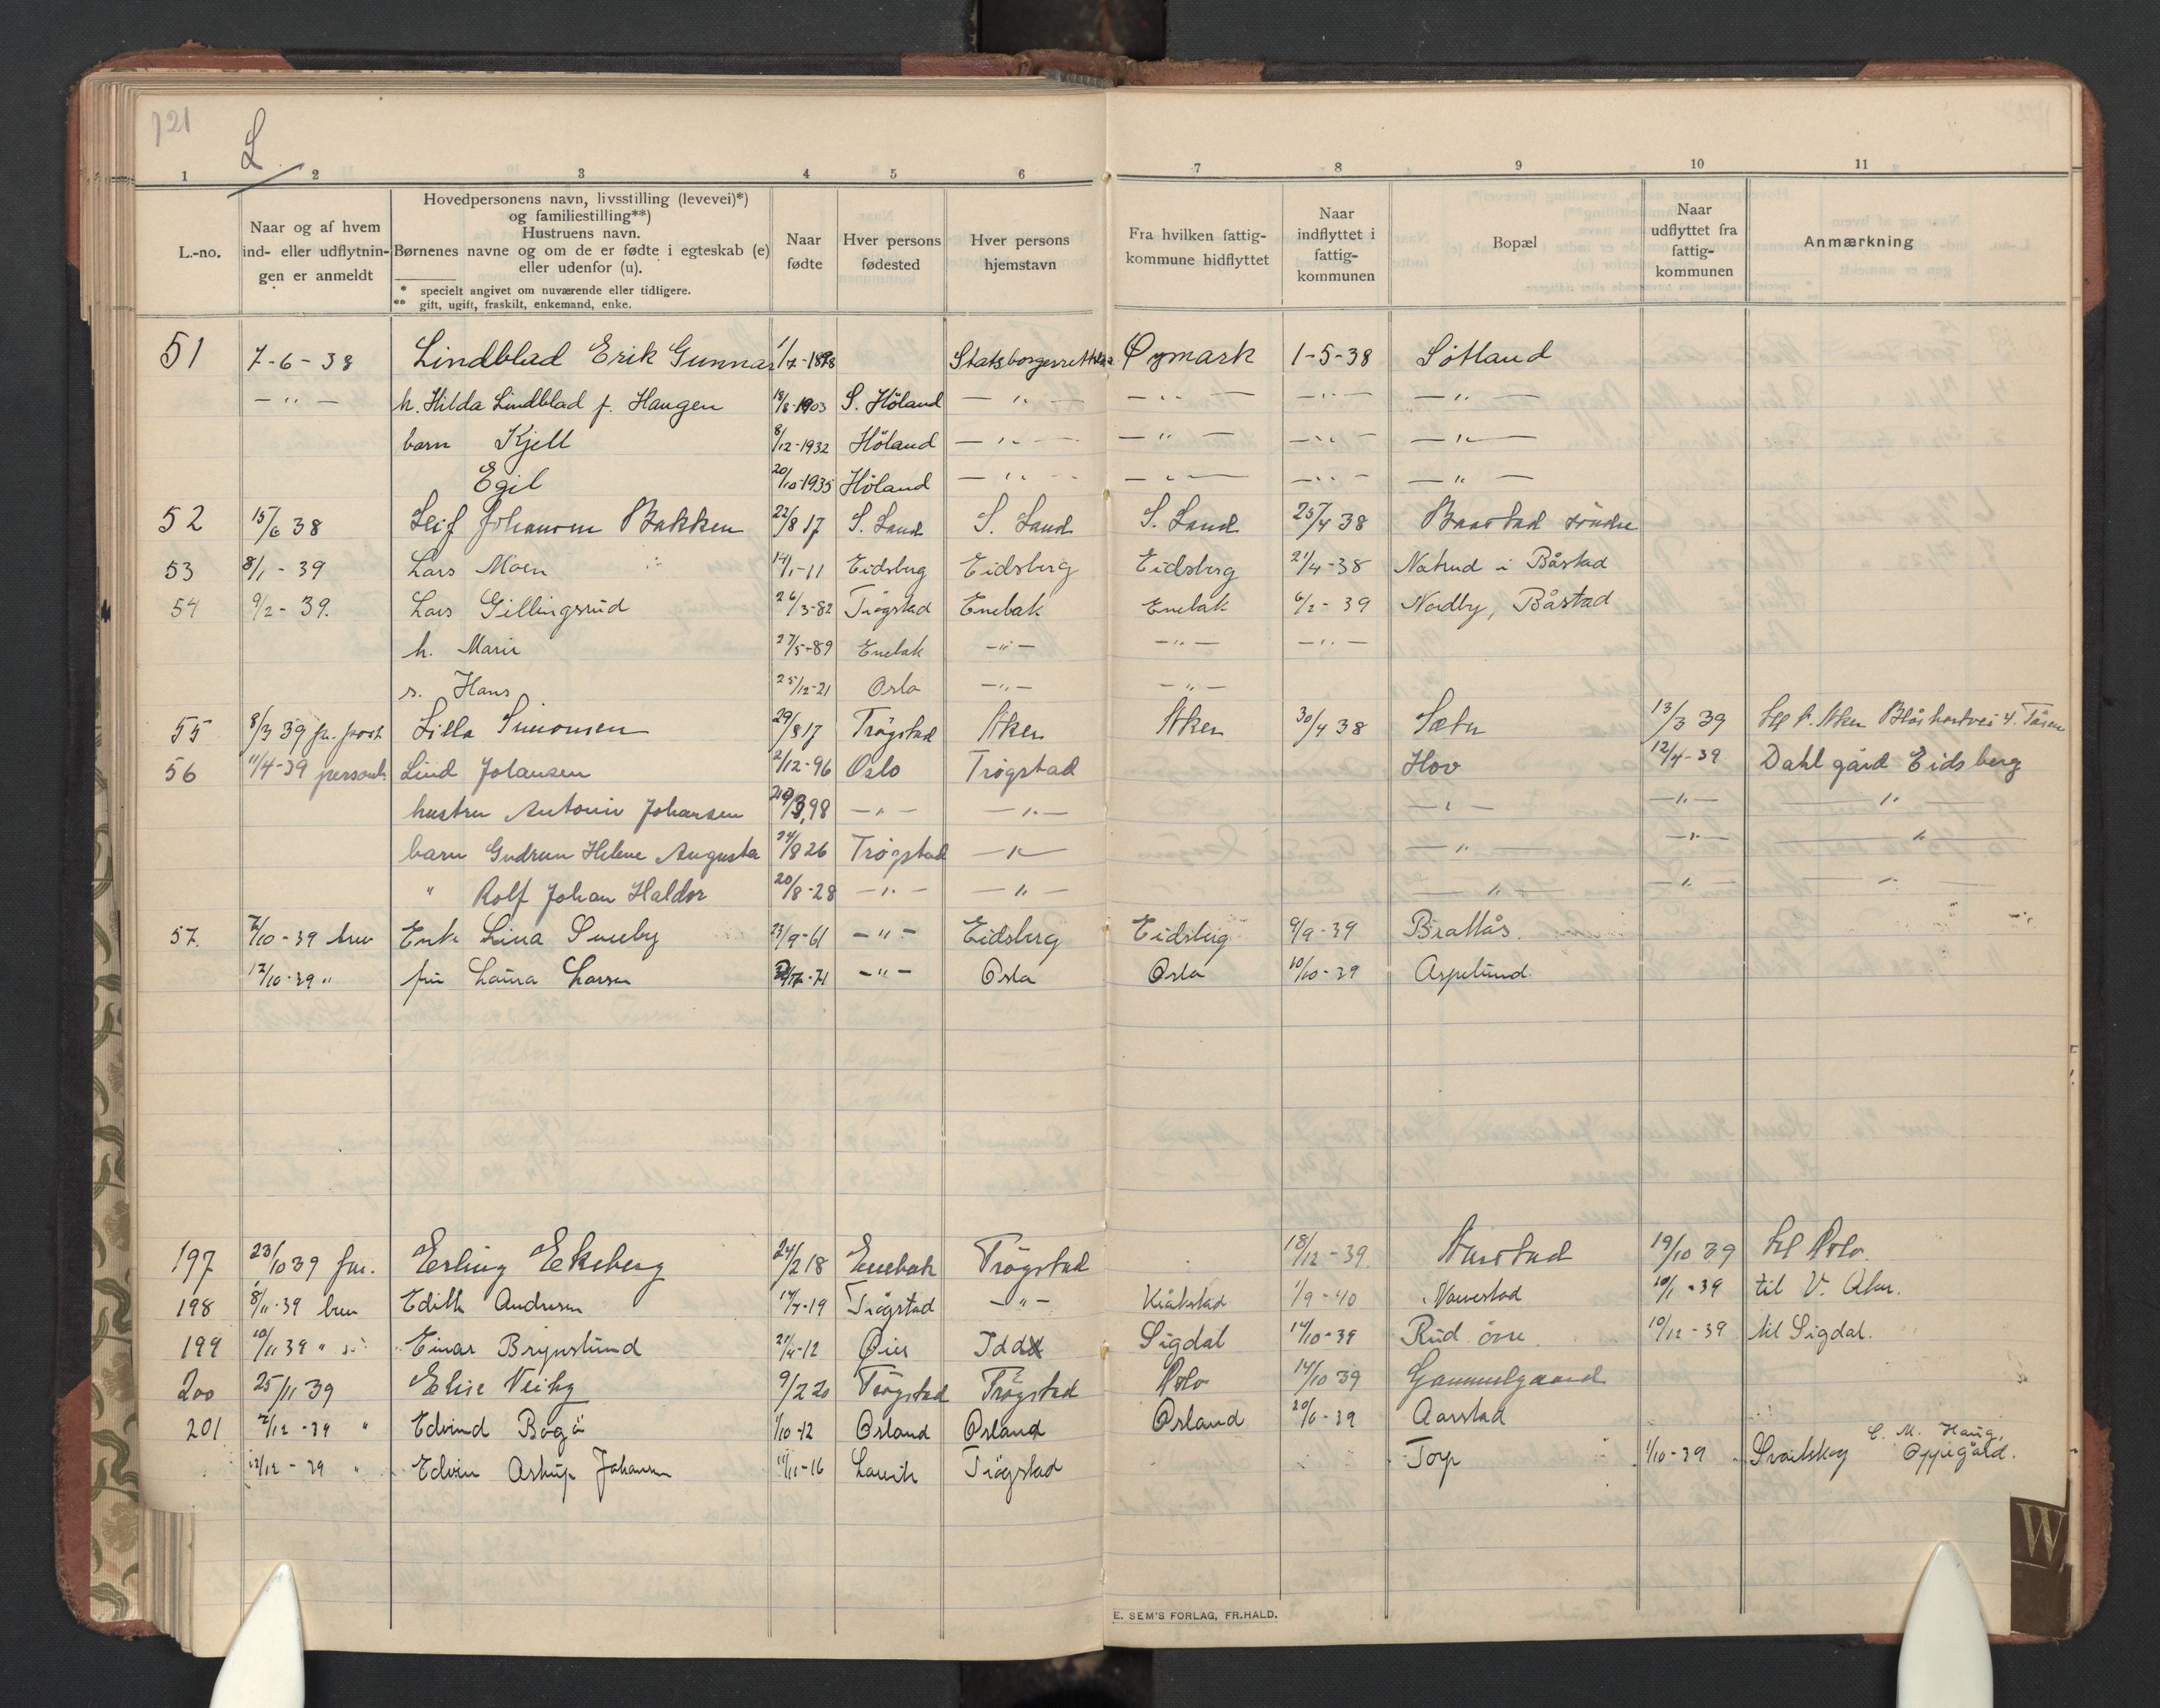 121
L
1 2 3 4 5 6 7 8 9 10 11
L.-no.
Naar og af hvem
ind- eller udflytnin-
gen er anmeldt
Hovedpersonens navn, livsstilling (levevei)*)
og familiestilling**)
Hustruens navn.
Børnenes navne og om de er fødte i egteskab (e)
eller udenfor (u).
* specielt angivet om nuværende eller tidligere.
** gift, ugift, fraskilt, enkemand, enke.
Naar
fødte
Hver persons
fødested
Hver persons
hjemstavn
Fra hvilken fattig-
kommune hidflyttet
Naar
indflyttet i
fattig-
kommunen
Bopæl
Naar
udflyttet fra
fattig-
kommunen
Anmærkning
51 7-6-38 Lindblad Erik Gunnar 1/7-1898 Øymark 1-5-38 Søtland
—"— h. Hilda Lindblad f. Haugen 18/8-1903 S. Höland —"— —"— —"— —"—
barn Kjell 8/12-1932 Höland —"— —"— —"— —"—
Egil 20/10-1935 Höland —"— —"— —"— —"—
52 15/6 38 Leif Johansen Bakken 22/8 17 S. Land S. Land S. Land 25/4 38 Baastad söndre
53 8/1-39 Lars Moen 14/1-11 Eidsberg Eidsberg Eidsberg 21/4-38 Natrud i Båstad
54 9/2-39. Lars Gillingsrud 26/3-82 Trögstad Enebak Enebak 6/2-39 Nordby, Båstad
h. Marie 27/5-89 Enebak —"— —"— —"—
s. Hans 25/12-21 Oslo —"— —"—
55 8/3 39 fr. post Lilla Simonsen 29/8 17 Trögstad Aker Aker 30/4 38 Sæter 13/3 39 til V. Aker Blåsbortvei 4. Tåsen
56 11/4-39 personl. Lind Johansen 2/12-96 Oslo Trögstad Hov 12/4-39 Dahl gård Eidsberg
hustru Antonie Johansen 98 —"— —"— —"— —"— —"—
barn Gudrun Helene Augusta 24/8 26 Trögstad —"— —"— —"— —"—
" Rolf Johan Haldor 20/8-28 —"— —"— —"— —"— —"—
57. 7/10-39 brev Enke Lina Smeby 23/9-61 —"— Eidsberg Eidsberg 9/9-39 Brattås.
12/10-39 " fru Laura Larsen -71 —"— Oslo Oslo 10/10-39 Aspelund.
197 23/10 39 fr. Erling Ekeberg 24/2 18 Enebak Trögstad 18/12-39 19/10 39 til Oslo.
198 8/11-39 brev Edith Andresen 14/7-19 Trögstad —"— Kråkstad 1/9-40 10/1-39 til V. Aker.
199 10/11 39 " Einar Brynslund 21/4-12 Øier Idd Sigdal 14/10-39 Rud övre 10/12-39 til Sigdal.
200 25/11 39 Elise Veiby 9/2 20 Trögstad Trögstad Oslo 14/10 39 Gammelgaard
201 2/12-39 " Edvind Bogö 1/10-12 Orland Orland Orland 20/6-39 Aarstad
12/12-39 " Edvin Astrup Johansen 11/11-16 Larvik Trögstad Torp 1/10-39 Svartskog C. M. Haug, Oppegård.
E. SEM'S FORLAG, FR.HALD.
W